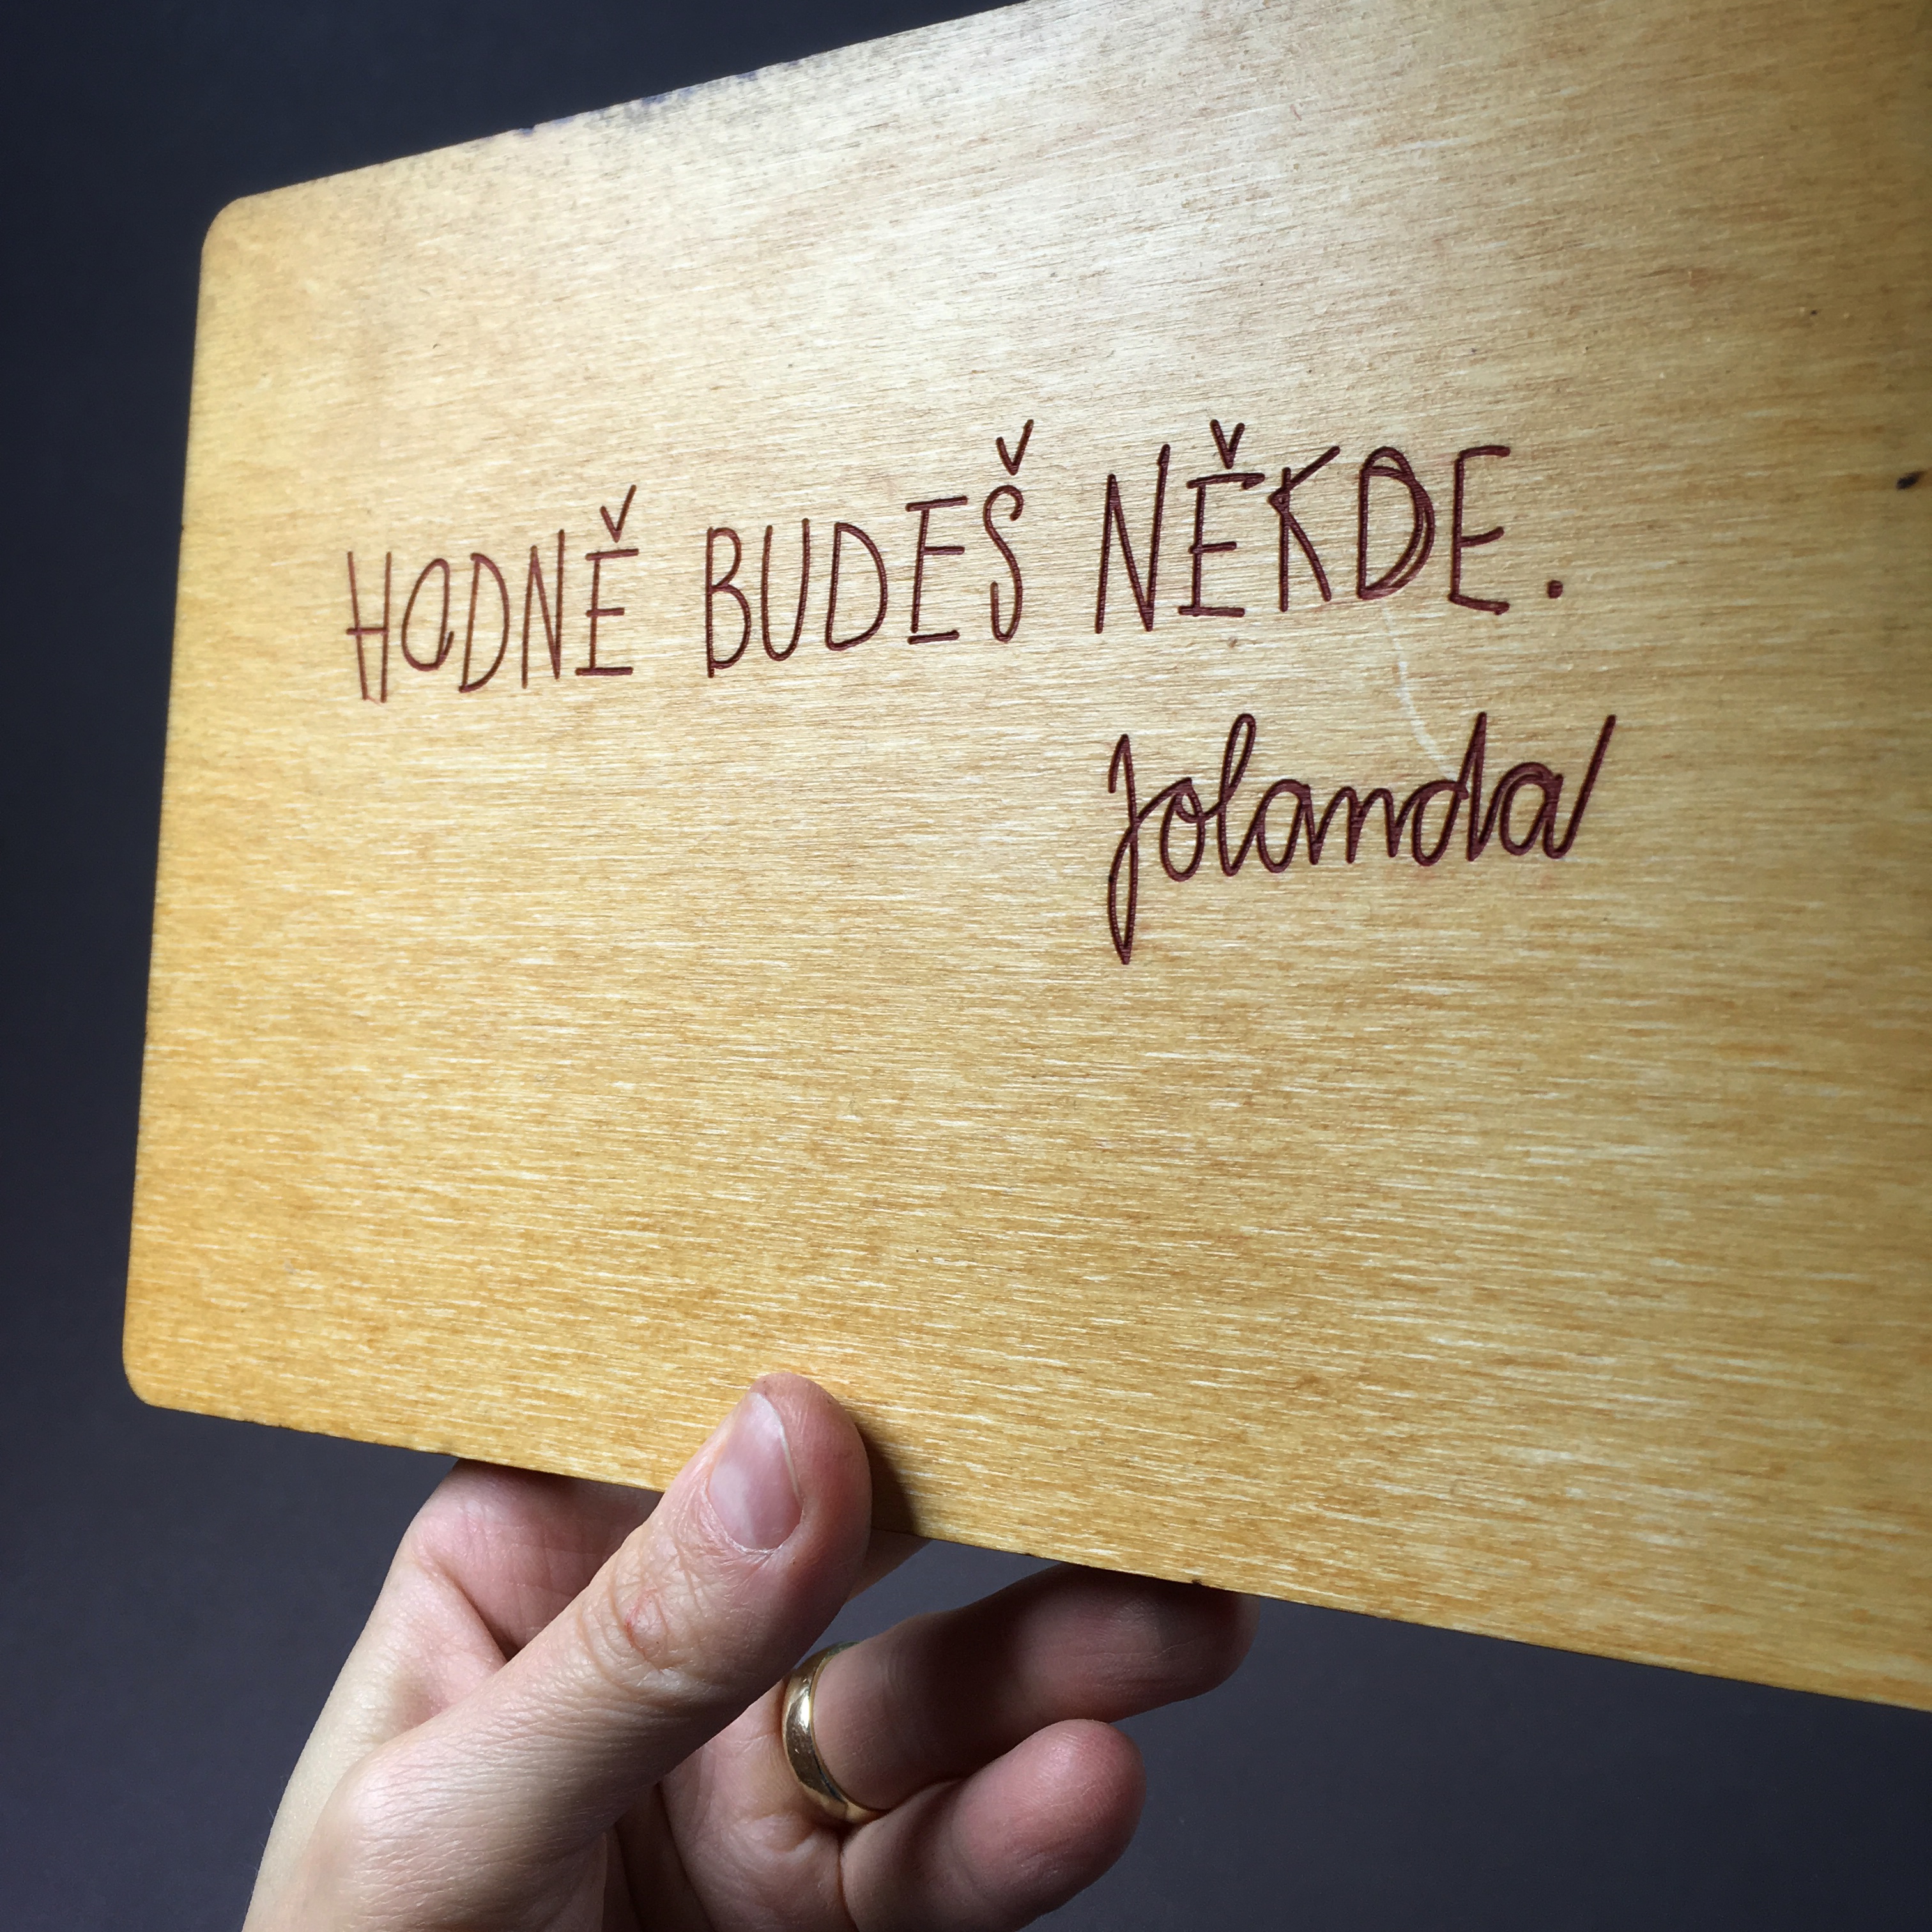 HODNĚ BUDEŠ NĚKDE.
Jolanda